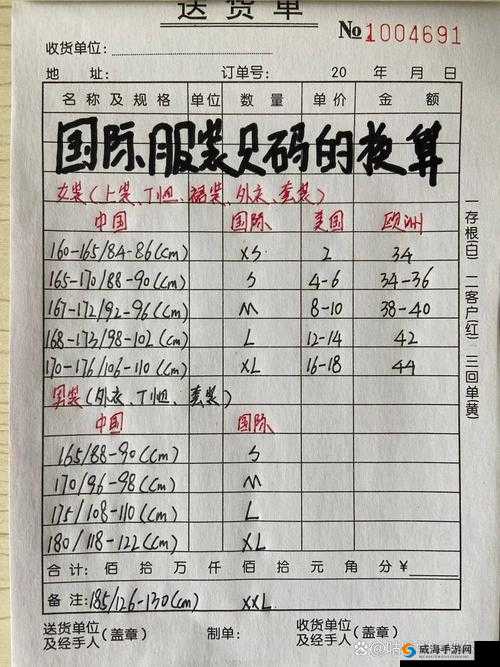 送货单
№1004691
收货单位:
地 址: 订单号: 20 年 月 日
名称及规格 单位 数量 单价 金额
国际服装尺码的换算
女装(上装、T恤、裙装、外衣、套装)
中国 国际 美国 欧洲
160-165/84-86(cm) XS 2 34
165-170/88-90(cm) S 4-6 34-36
167-172/92-96(cm) M 8-10 38-40
168-173/98-102(cm) L 12-14 42
170-176/106-110(cm) XL 16-18 44
男装(外衣、T恤、套装)
中国 国际
165/88-90(cm) S
170/96-98(cm) M
175/108-110(cm) L
180/118-122(cm) XL
合计: 佰 拾 万 仟 佰 拾 元 角 分 ¥
备注: 185/126-130(cm) XXL
送货单位及经手人(盖章) 制单: 收货单位及经手人
一存根(白) 二客户(红) 三回单(黄)
威海手游网